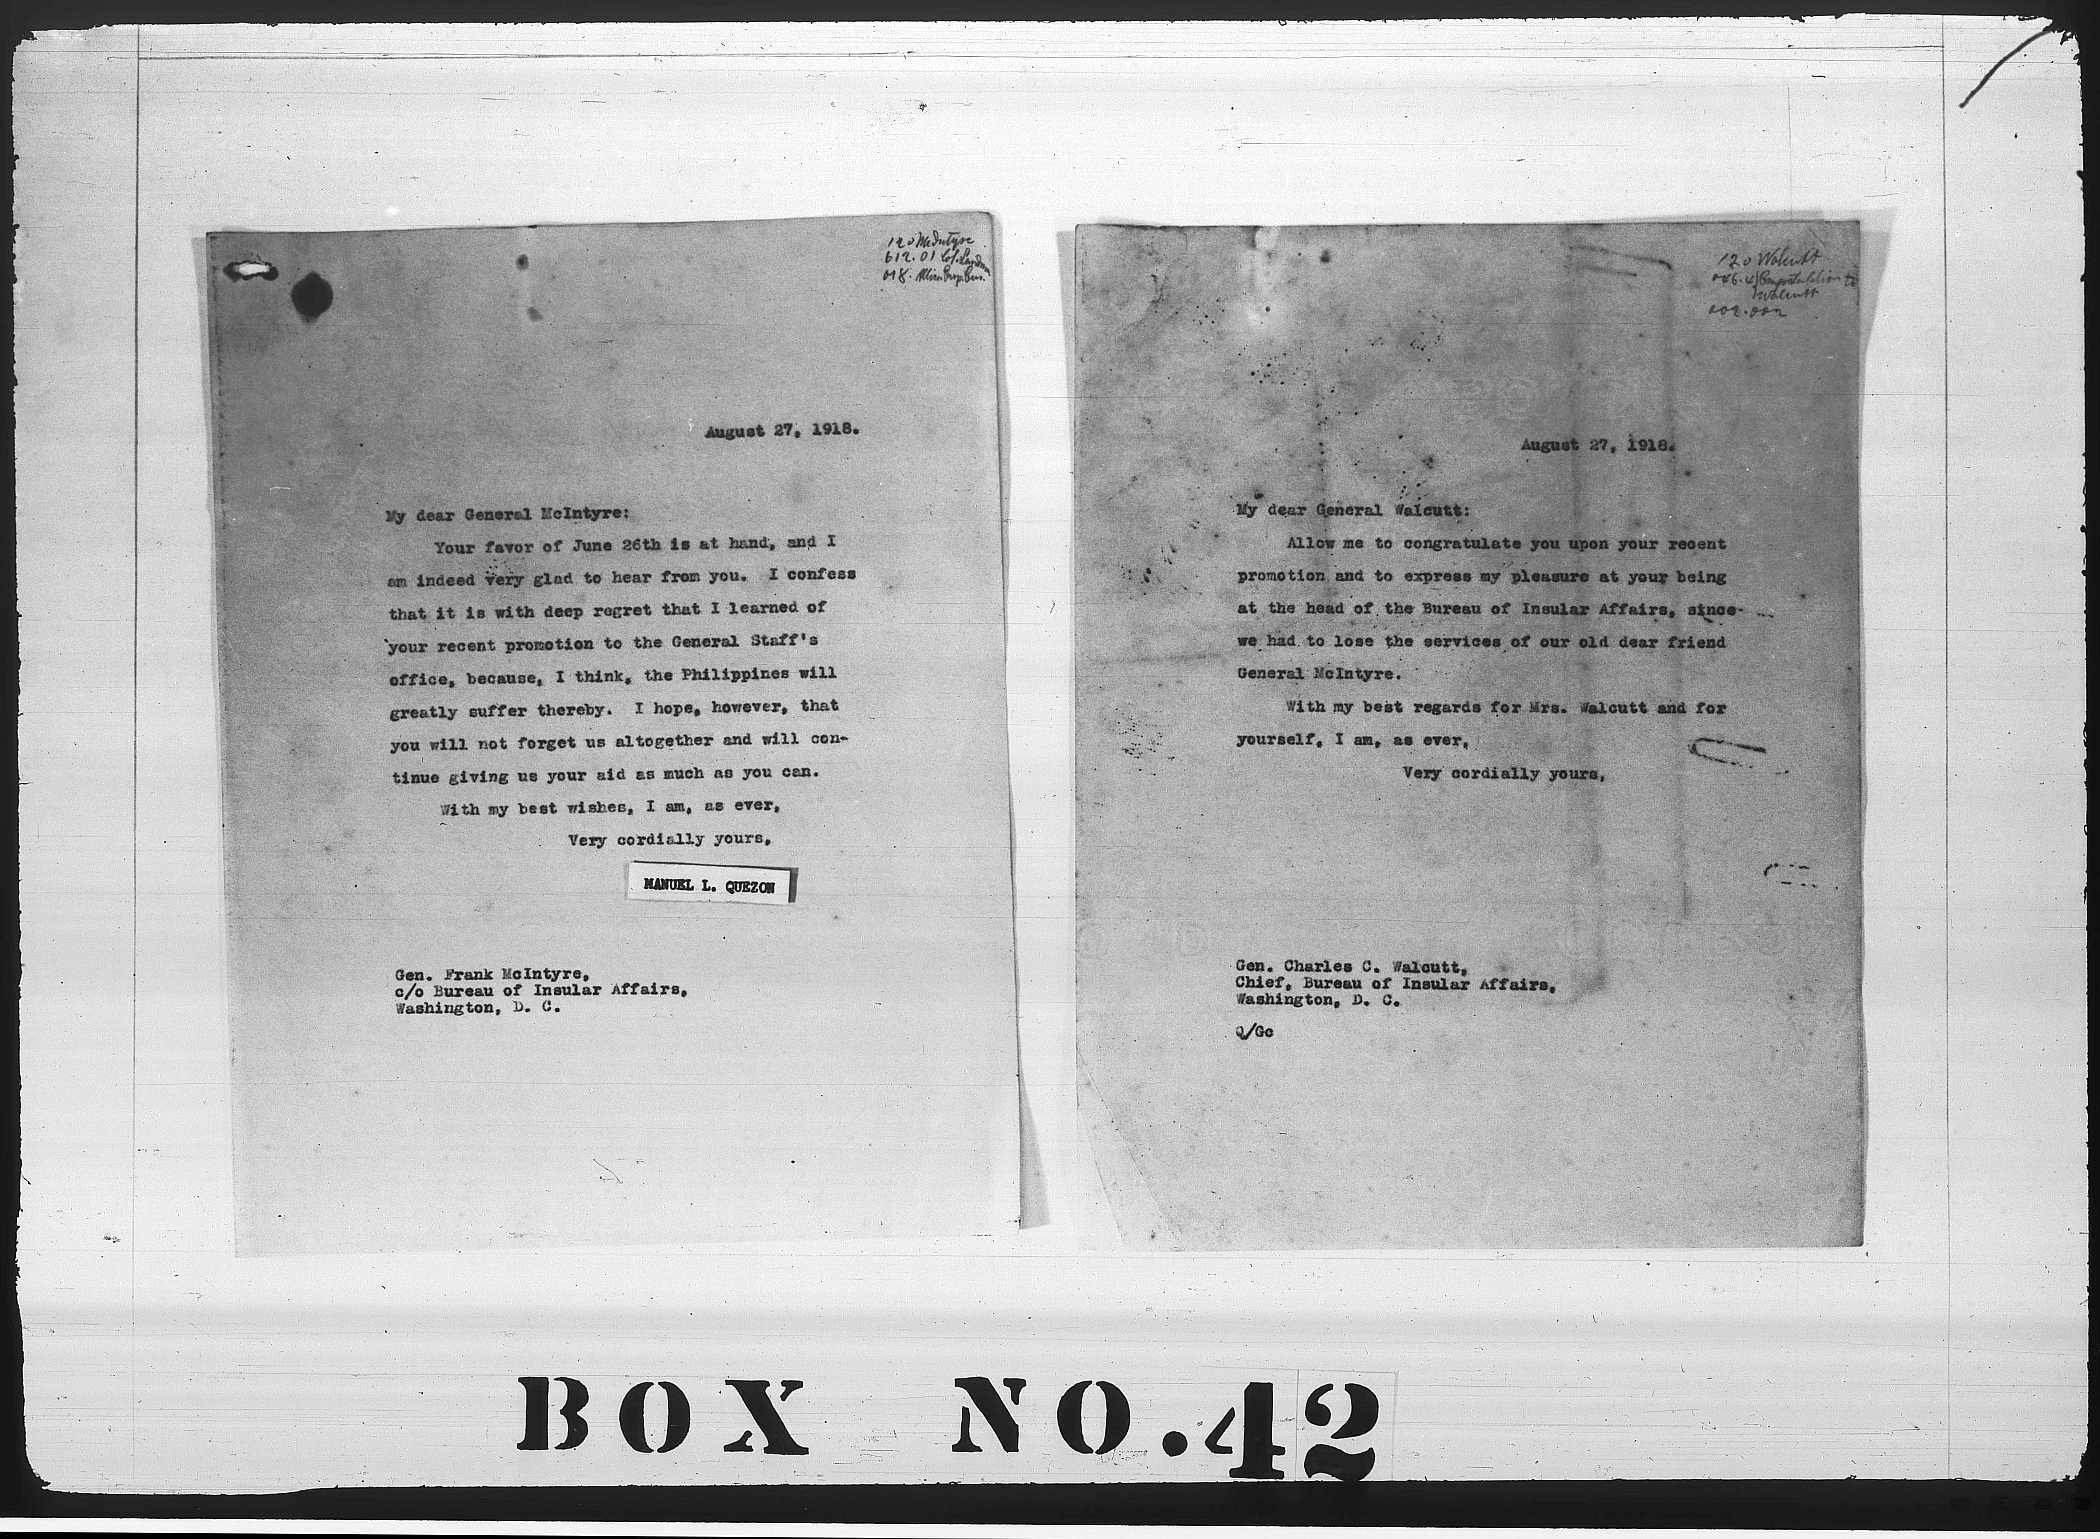 120 McIntyre
612.01
018.
August 27, 1918.
My dear General McIntyre:
Your favor of June 26th is at hand, and I
am indeed very glad to hear from you. I confess
that it is with deep regret that I learned of
your recent promotion to the General Staff's
office, because, I think, the Philippines will
greatly suffer thereby. I hope, however, that
you will not forget us altogether and will con-
tinue giving us your aid as much as you can.
With my best wishes, I am, as ever,
Very cordially yours,
MANUEL L. QUEZON
Gen. Frank McIntyre,
c/o Bureau of Insular Affairs,
Washington, D. C.
120 Walcutt
Walcutt
August 27, 1918.
My dear General Walcutt:
Allow me to congratulate you upon your recent
promotion and to express my pleasure at your being
at the head of the Bureau of Insular Affairs, since
we had to lose the services of our old dear friend
General McIntyre.
With my best regards for Mrs. Walcutt and for
yourself, I am, as ever,
Very cordially yours,
Gen. Charles C. Walcutt,
Chief, Bureau of Insular Affairs,
Washington, D. C.
Q/Gc
BOX NO.42